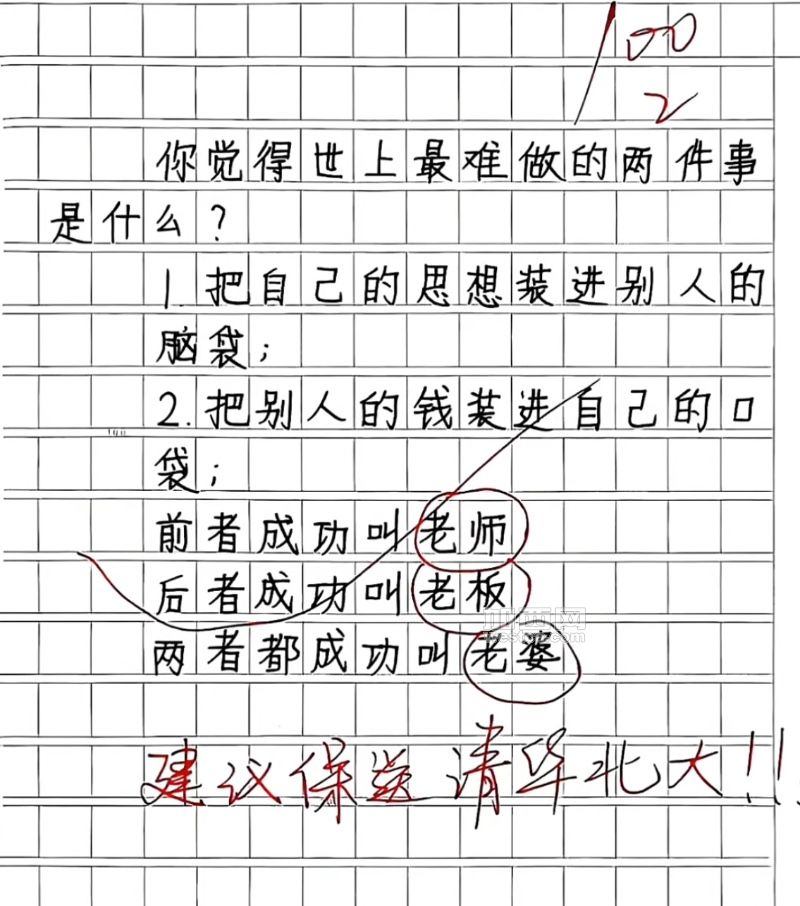 100
2
你觉得世上最难做的两件事
是什么？
1.把自己的思想装进别人的
脑袋；
2.把别人的钱装进自己的口
袋；
前者成功叫老师
后者成功叫老板
两者都成功叫老婆
建议保送清华北大!!